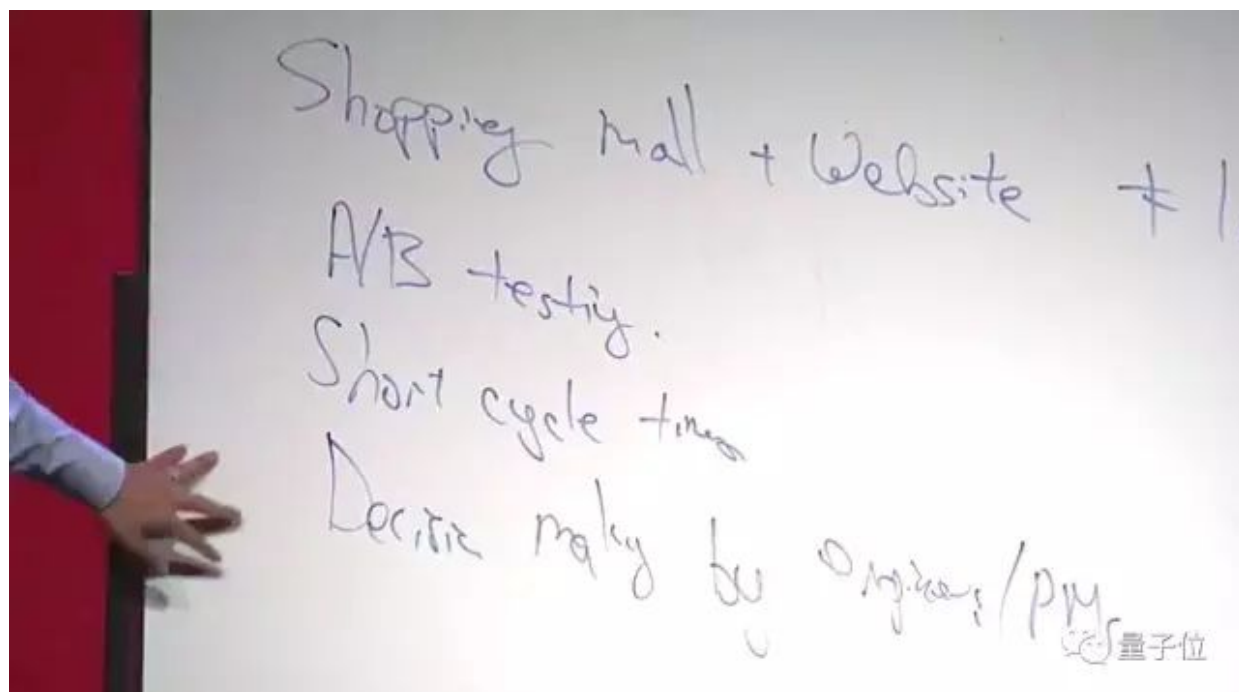 Shopping mall + Website ≠ 1
A/B testing.
Short cycle times
Decision making by Engineers/PMs
量子位